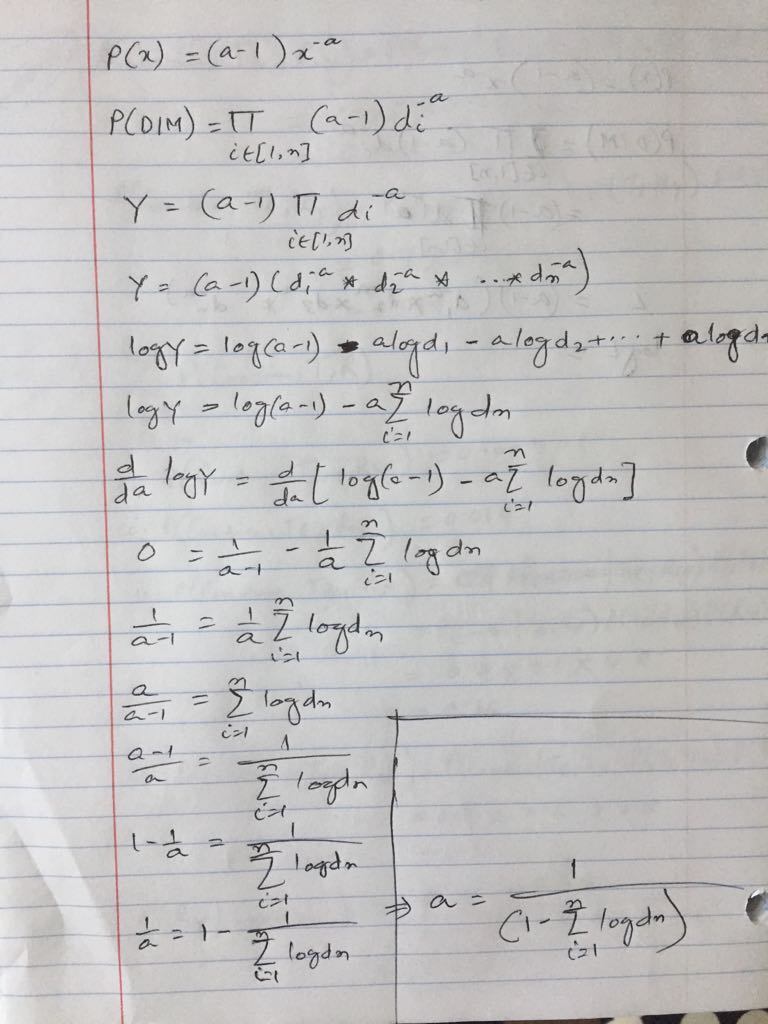 P(x) = (a-1) x^-a
P(D|M) = Π (a-1) di^-a
i∈[1,n]
Y = (a-1) Π di^-a
i∈[1,n]
Y = (a-1) (d1^-a * d2^-a * ... * dn^-a)
logY = log(a-1) - alogd1 - alogd2 + ... + alogdn
logY = log(a-1) - a Σ_{i=1}^{n} logdn
d/da logY = d/da [ log(a-1) - a Σ_{i=1}^{n} logdn ]
0 = 1/(a-1) - 1/a Σ_{i=1}^{n} logdn
1/(a-1) = 1/a Σ_{i=1}^{n} logdn
a/(a-1) = Σ_{i=1}^{n} logdn
(a-1)/a = 1/(Σ_{i=1}^{n} logdn)
1 - 1/a = 1/(Σ_{i=1}^{n} logdn)
1/a = 1 - 1/(Σ_{i=1}^{n} logdn) ⇒ a = 1/(1 - Σ_{i=1}^{n} logdn)